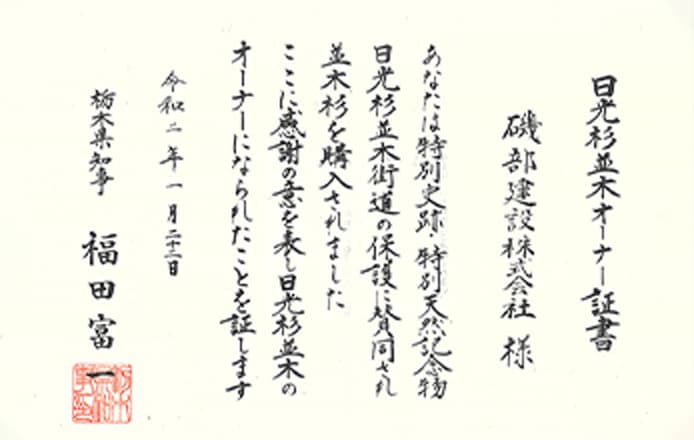 日光杉並木オーナー証書
磯部建設株式会社 様
あなたは特別史跡・特別天然記念物
日光杉並木街道の保護に賛同され
並木杉を購入されました
ここに感謝の意を表し日光杉並木の
オーナーになられたことを証します
令和二年一月二十三日
栃木県知事 福田富一